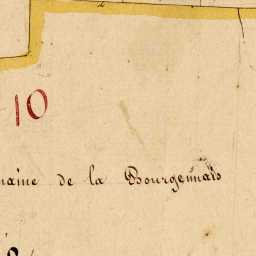 10
maine de la Bourgennais